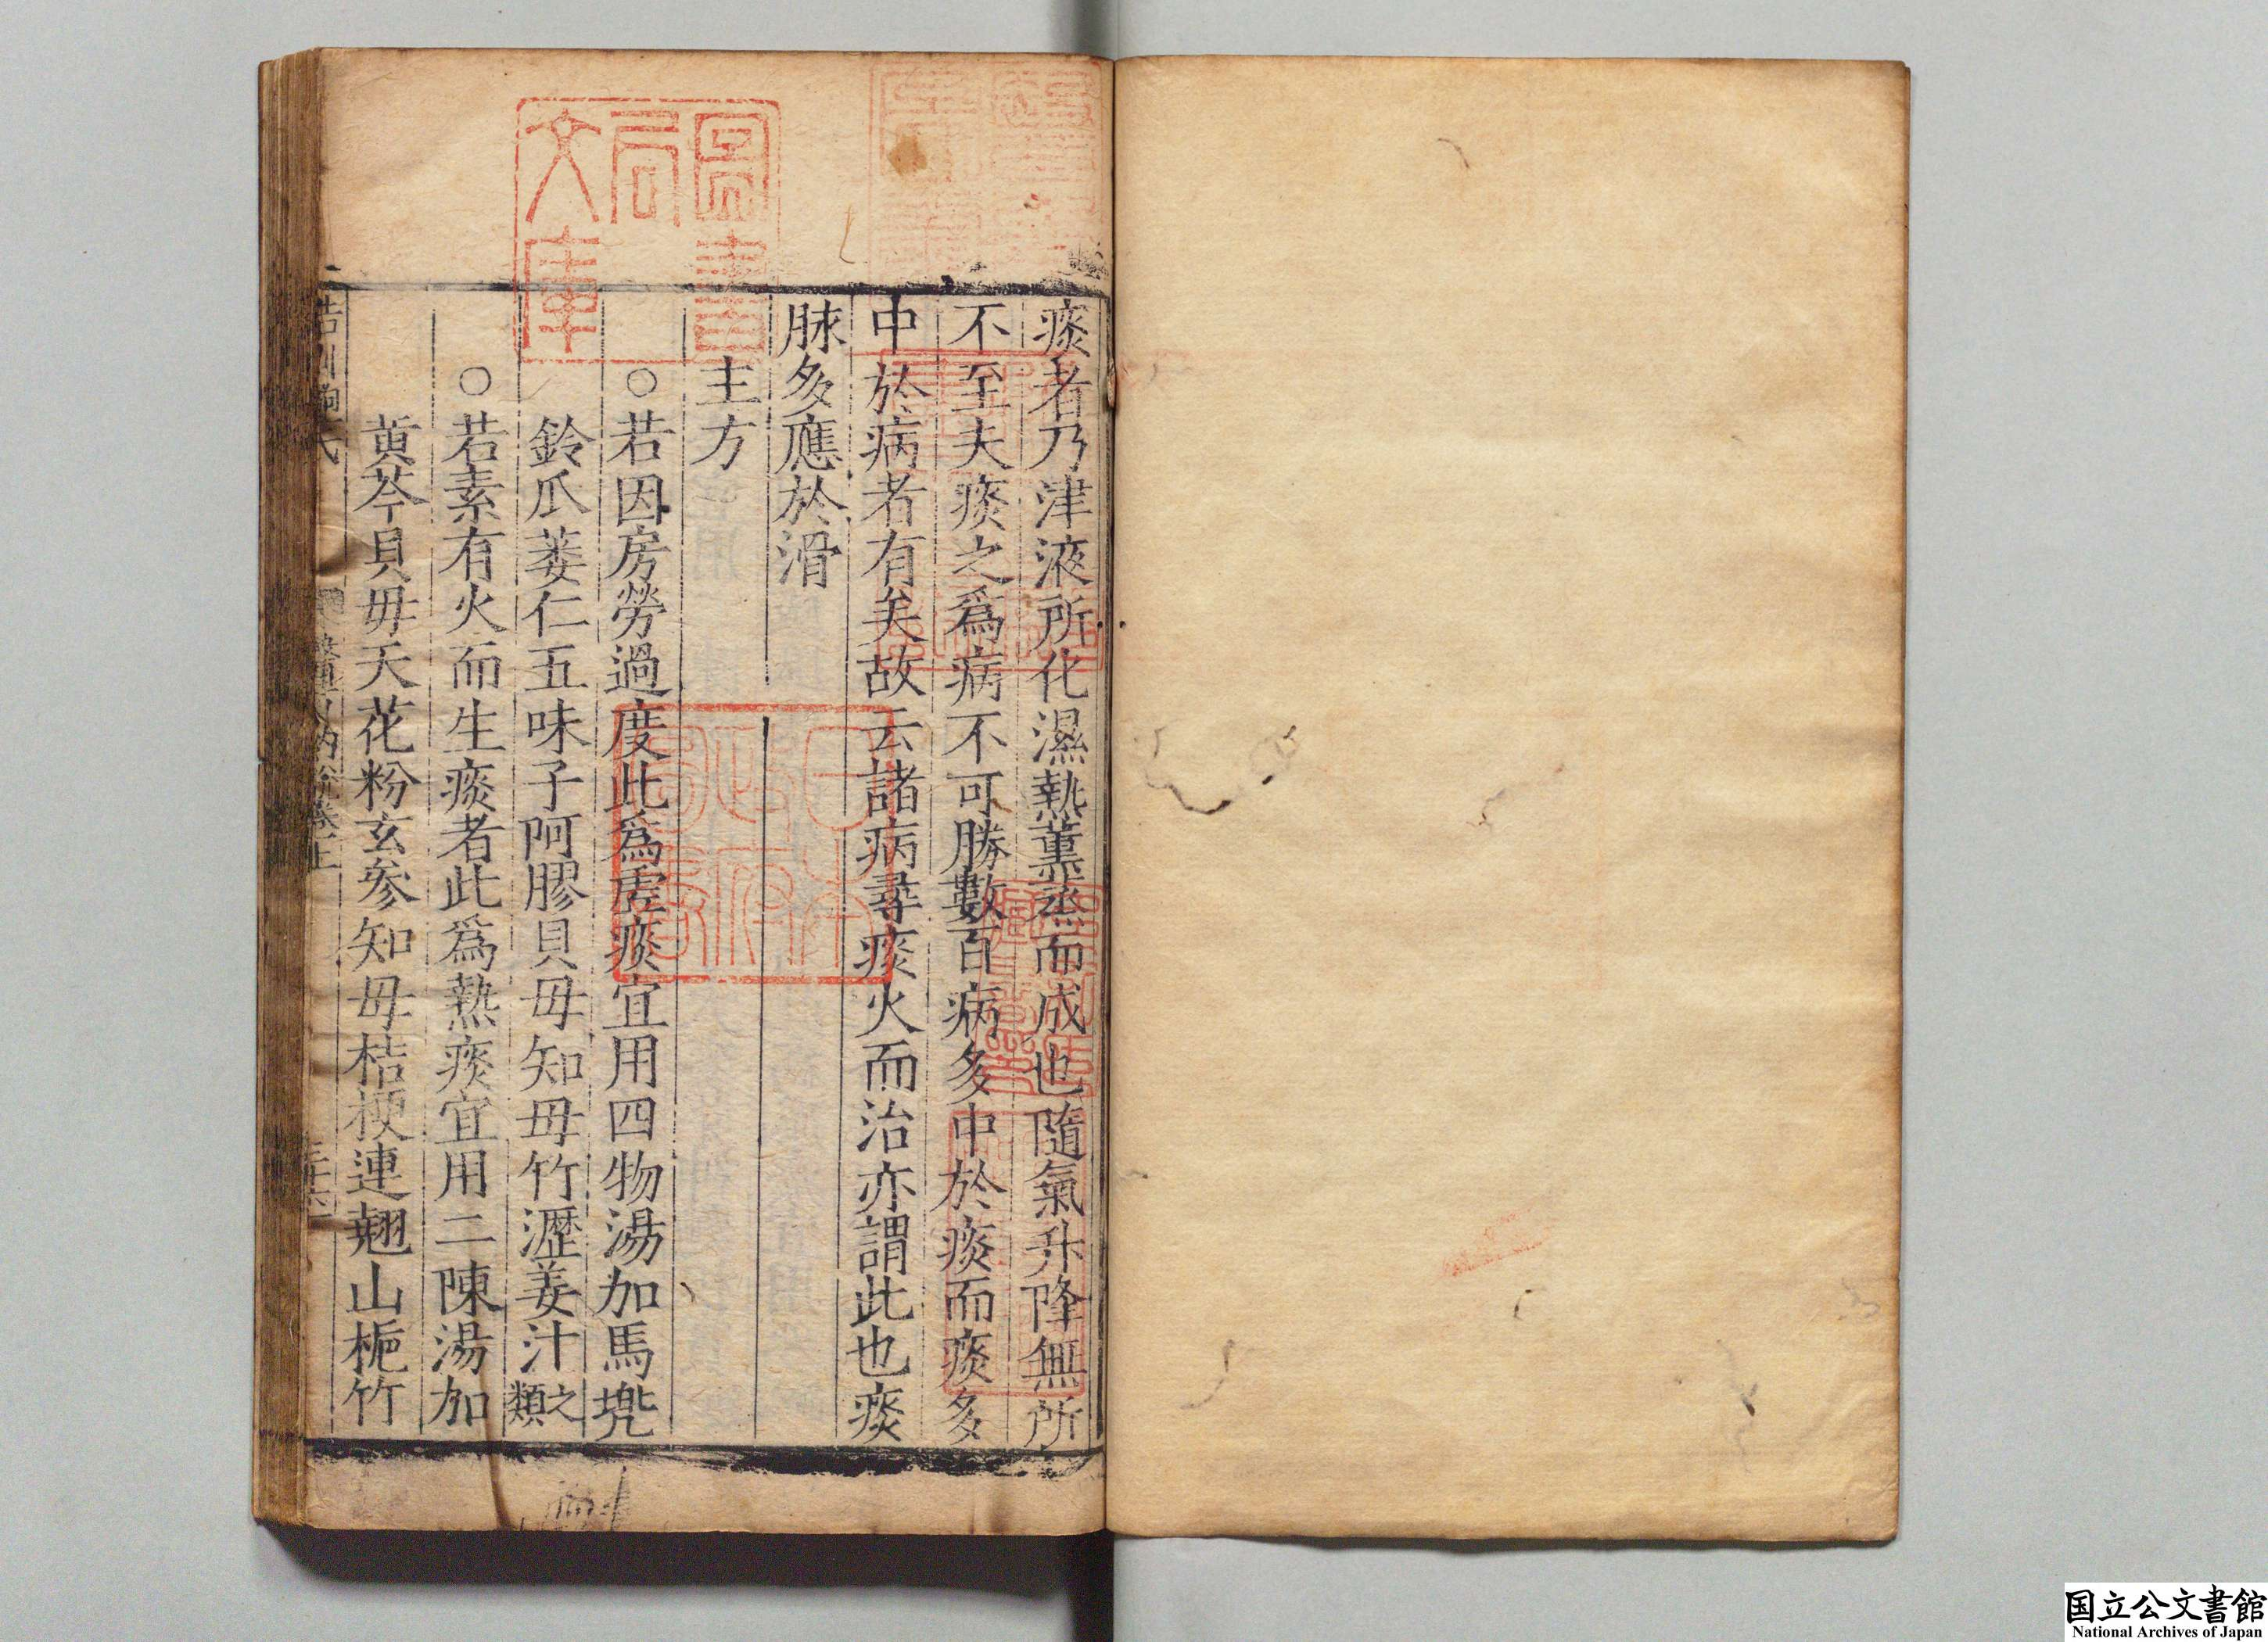 痰者乃津液所化濕熱薰蒸而成也隨氣升降無所
不至夫痰之爲病不可勝數百病多中於痰而痰多
中於病者有矣故云諸病尋痰火而治亦謂此也痰
脉多應於滑
主方
○若因房勞過度此爲虛痰宜用四物湯加馬兠
鈴瓜蔞仁五味子阿膠貝毋知毋竹瀝姜汁之類
○若素有火而生痰者此爲熱痰宜用二陳湯加
黃芩貝毋天花粉玄參知毋桔梗連翹山梔竹
圖書
局
文庫
国立公文書館
National Archives of Japan